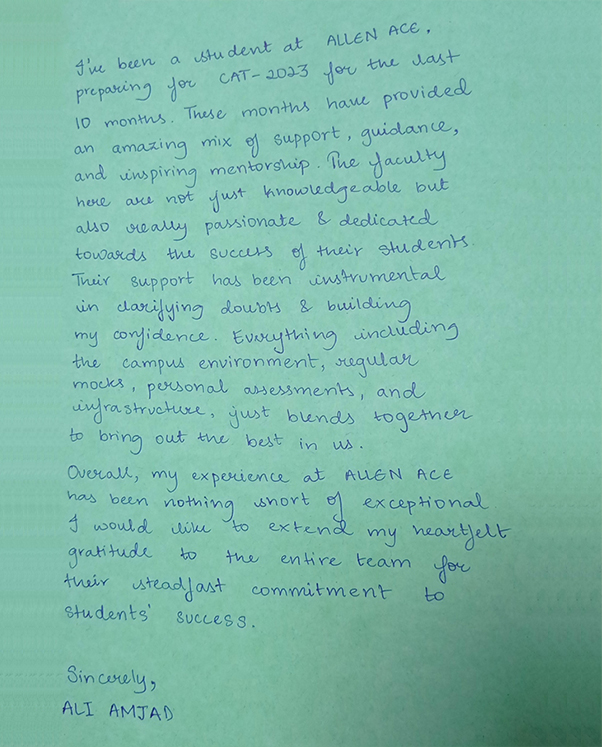 I've been a student at ALLEN ACE,
preparing for CAT-2023 for the last
10 months. These months have provided
an amazing mix of support, guidance,
and inspiring mentorship. The faculty
here are not just knowledgeable but
also really passionate & dedicated
towards the success of their students.
Their support has been instrumental
in clarifying doubts & building
my confidence. Everything including
the campus environment, regular
mocks, personal assessments, and
infrastructure, just blends together
to bring out the best in us.
Overall, my experience at ALLEN ACE
has been nothing short of exceptional
I would like to extend my heartfelt
gratitude to the entire team for
their steadfast commitment to
students' success.
Sincerely,
ALI AMJAD